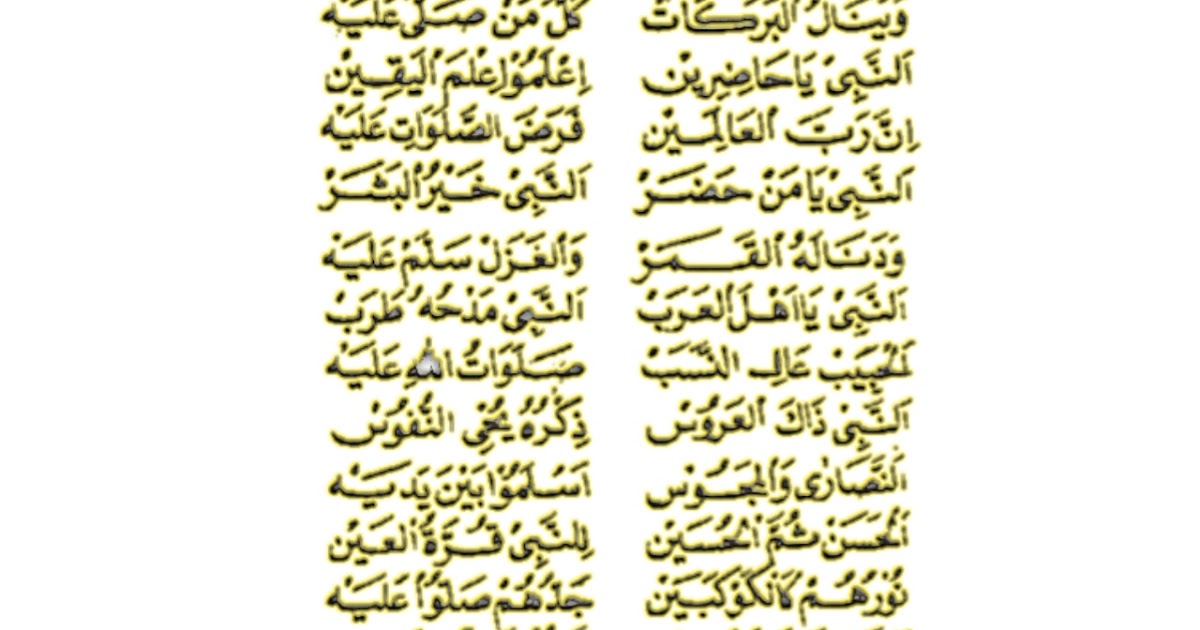 وَيَنَالُ الْبَرَكَاتْ كُلُّ مَنْ صَلَّى عَلَيْهِ
اَلنَّبِىْ يَاحَاضِرِيْنِ اِعْلَمُوْا عِلْمَ الْيَقِيْنْ
اِنَّ رَبَّ الْعَالَمِيْنْ فَرَضَ الصَّلَوَاتِ عَلَيْهِ
اَلنَّبِىْ يَا مَنْ حَضَرْ اَلنَّبِىْ خَيْرُ الْبَشَرْ
وَدَنَا لَهُ الْقَمَرْ وَالْغَزَلْ سَلَّمْ عَلَيْهِ
اَلنَّبِىْ يَا اَهْلَ الْعَرَبْ اَلنَّبِىْ مَدْحُهُ طَرَبْ
لَحَبِيْبْ عَالِى النَّسَبْ صَلَوَاتُ اللهِ عَلَيْهِ
اَلنَّبِىْ ذَاكَ الْعَرُوْسْ ذِكْرُهُ يُحْىِ النُّفُوْسْ
اَلنَّصَارٰى وَالْمَجُوْسْ اَسْلَمُوْا بَيْنَ يَدَيْهِ
اَلْحَسَنْ ثُمَّ الْحُسَيْنْ لِلنَّبِىْ قُرَّةُ الْعَيْنْ
نُوْرُهُمْ كَالْكَوْكَبَيْنْ جَدُّهُمْ صَلُّوْا عَلَيْهِ